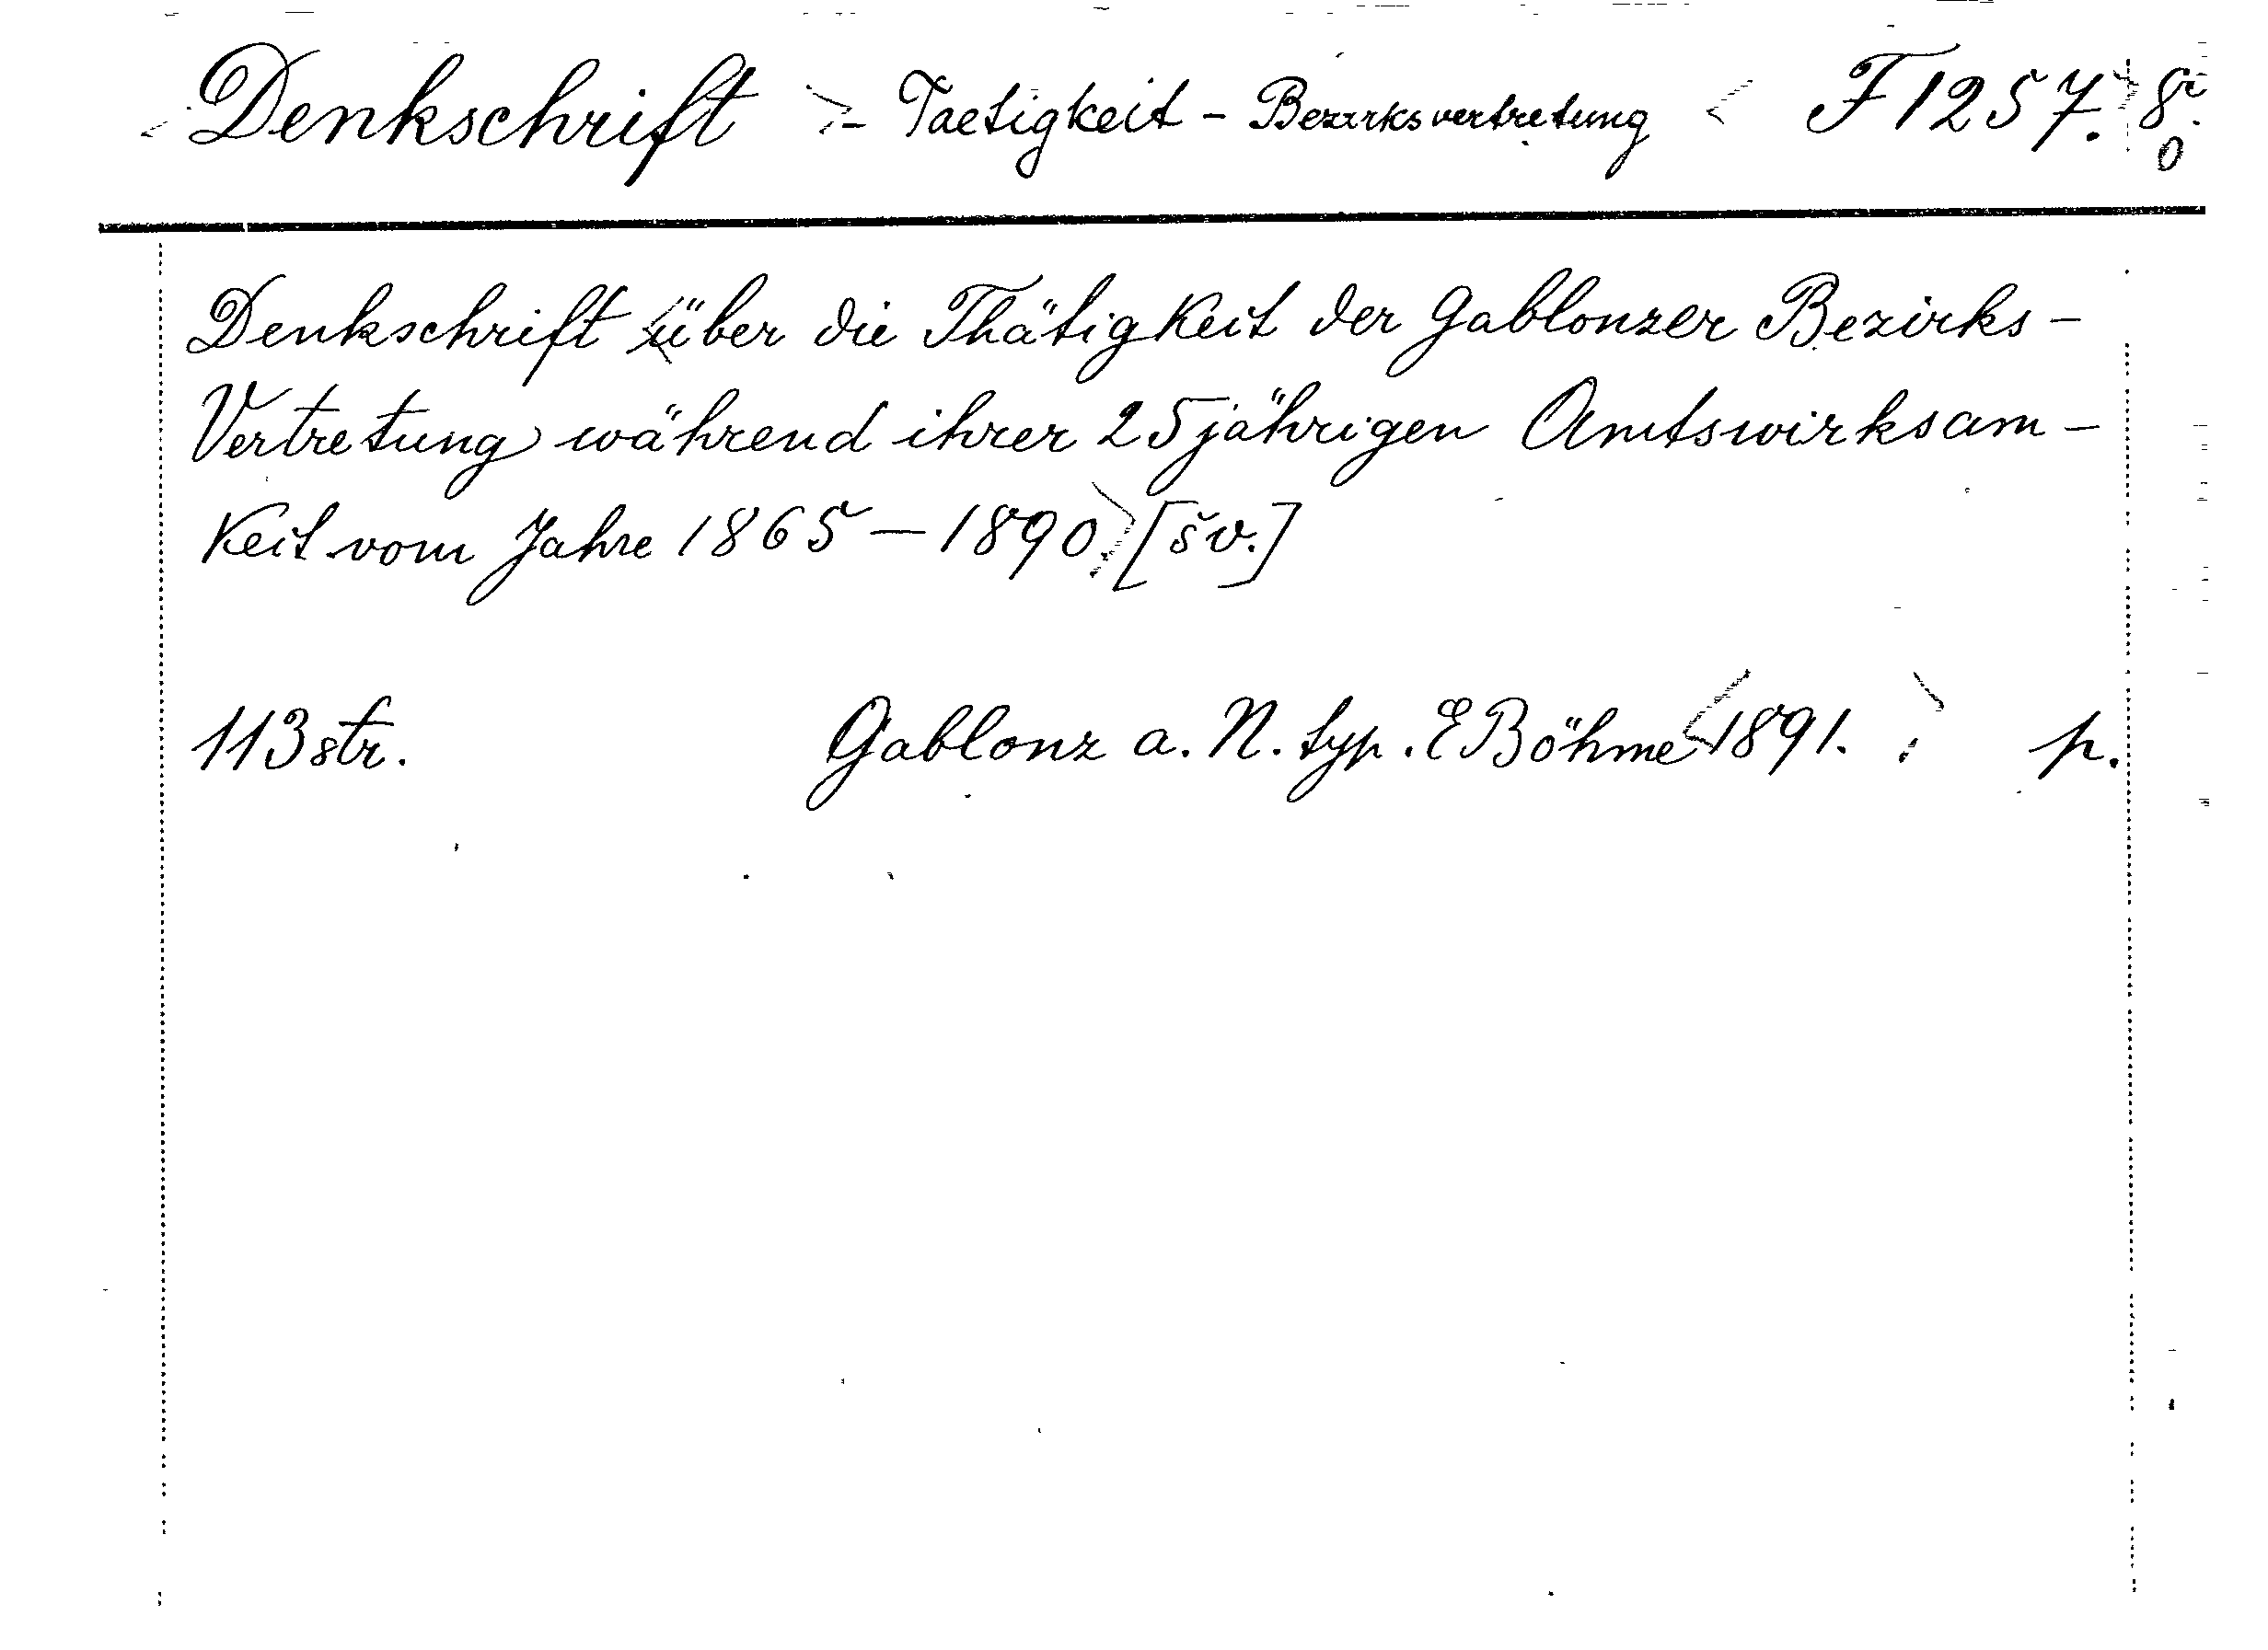 Denkschrift - Taetigkeit - Bezirksvertretung F 1257. 8.
0
Denkschrift über die Thätigkeit der Gablonzer Bezirks-
Vertretung während ihrer 25jährigen Amtswirksam-
keit vom Jahre 1865 - 1890. [šv.]
113 str. Gablonz a. N. typ. E Böhme 1891. p.